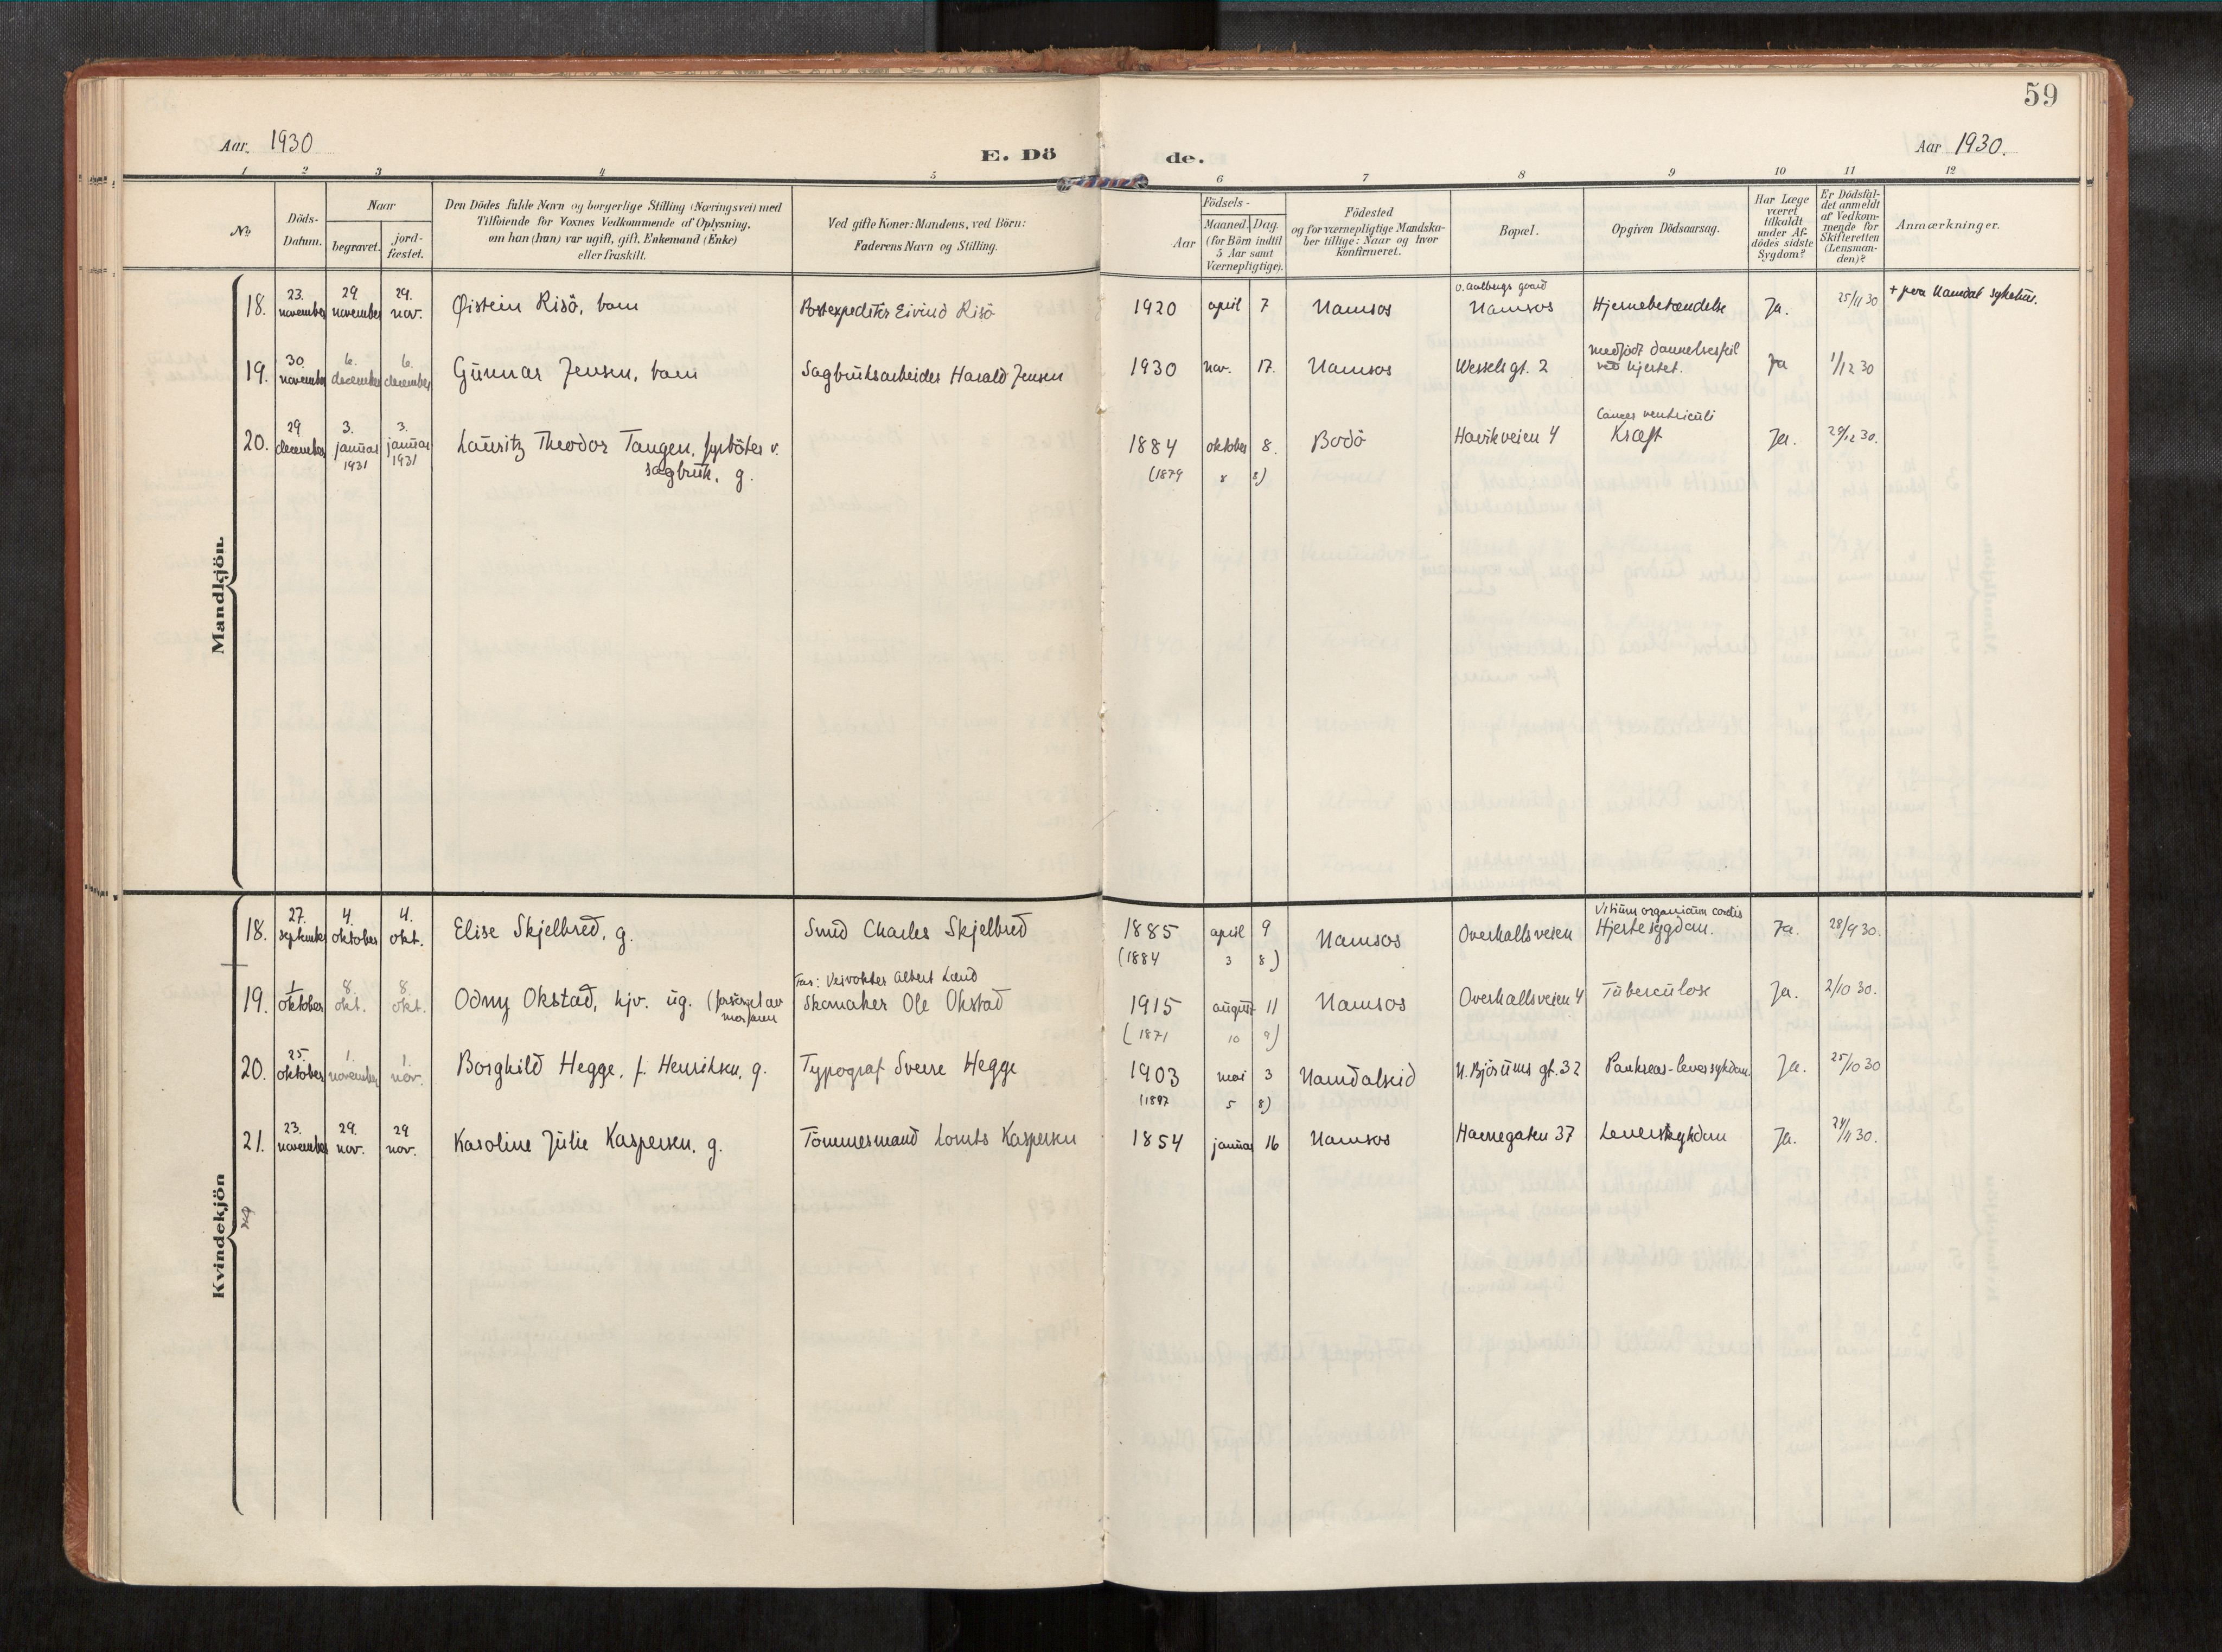 59
Aar 1930
E. Dö
de.
Aar 1930.
1 2 3 4 5 6 7 8 9 10 11 12
No.
Döds-
Datum.
Naar
begravet.
jord-
fæstet.
Den Dödes fulde Navn og borgerlige Stilling (Næringsvei) med
Tilføiende for Voxnes Vedkommende af Oplysning,
om han (hun) var ugift, gift, Enkemand (Enke)
eller fraskilt.
Ved gifte Koner: Mandens, ved Börn:
Faderens Navn og Stilling.
Födsels-
Aar
Maaned. Dag.
(for Börn indtil
5 Aar samt
Værnepligtige).
Födested
og for værnepligtige Mandska-
ber tillige: Naar og hvor
konfirmeret.
Bopæl.
Opgiven Dödsaarsag.
Har Læge
været
tilkaldt
under Af-
dödes sidste
Sygdom?
Er Dödsfal-
det anmeldt
af Vedkom-
mende for
Skifteretten
(Lensman-
den)?
Anmærkninger.
Mandkjön.
18. 23. november 29. november 29. nov. Øistein Risö, barn Postexpeditör Eivind Risö 1920 april 7 Namsos O. Aalbergs gaard Namsos Hjernebetændelse Ja. 25/11 30 + paa Namdal sykehus.
19. 30. november 6. december 6. december Gunnar Jensen, barn Sagbruksarbeider Harald Jensen 1930 nov. 17. Namsos Wessels gt. 2 medfödt dannelsesfeil ved hjertet. Ja 1/12 30
20. 29 december 3. januar 1931 3. januar 1931 Lauritz Theodor Tangen, fyrböter v. sagbruk, g. 1884 oktober 8. Bodö Havikveien 4 Cancer ventriculi Kræft Ja. 29/12 30.
(1879 8 8)
Kvindekjön
18. 27. september 4. oktober 4. okt. Elise Skjelbred, g. Smed Charles Skjelbred 1885 april 9 Namsos Overhallsveien Vitium organicum cordis Hjertesygdom. Ja. 28/9 30.
(1884 3 8)
19. 1 oktober 8. okt. 8. okt. Odny Okstad, hjv. ug. (forsörget av morfaren Far: Veivokter Albert Lund Skomaker Ole Okstad 1915 august 11 Namsos Overhallsveien 4 Tuberculose Ja. 2/10 30.
(1871 10 9)
20. 25. oktober 1. november 1. nov. Borghild Hegge, f. Henriksen, g. Typograf Sverre Hegge 1903 mai 3 Namdalseid H. Bjørums gt. 32 Pankreas-leversykdom. Ja. 25/10 30
(1897 5 8)
21. 23. november 29. nov. 29 nov. Karoline Julie Kaspersen, g. Tömmermand Lorents Kaspersen 1854 januar 16 Namsos Havnegaten 37 Leversykdom Ja. 24/11 30.